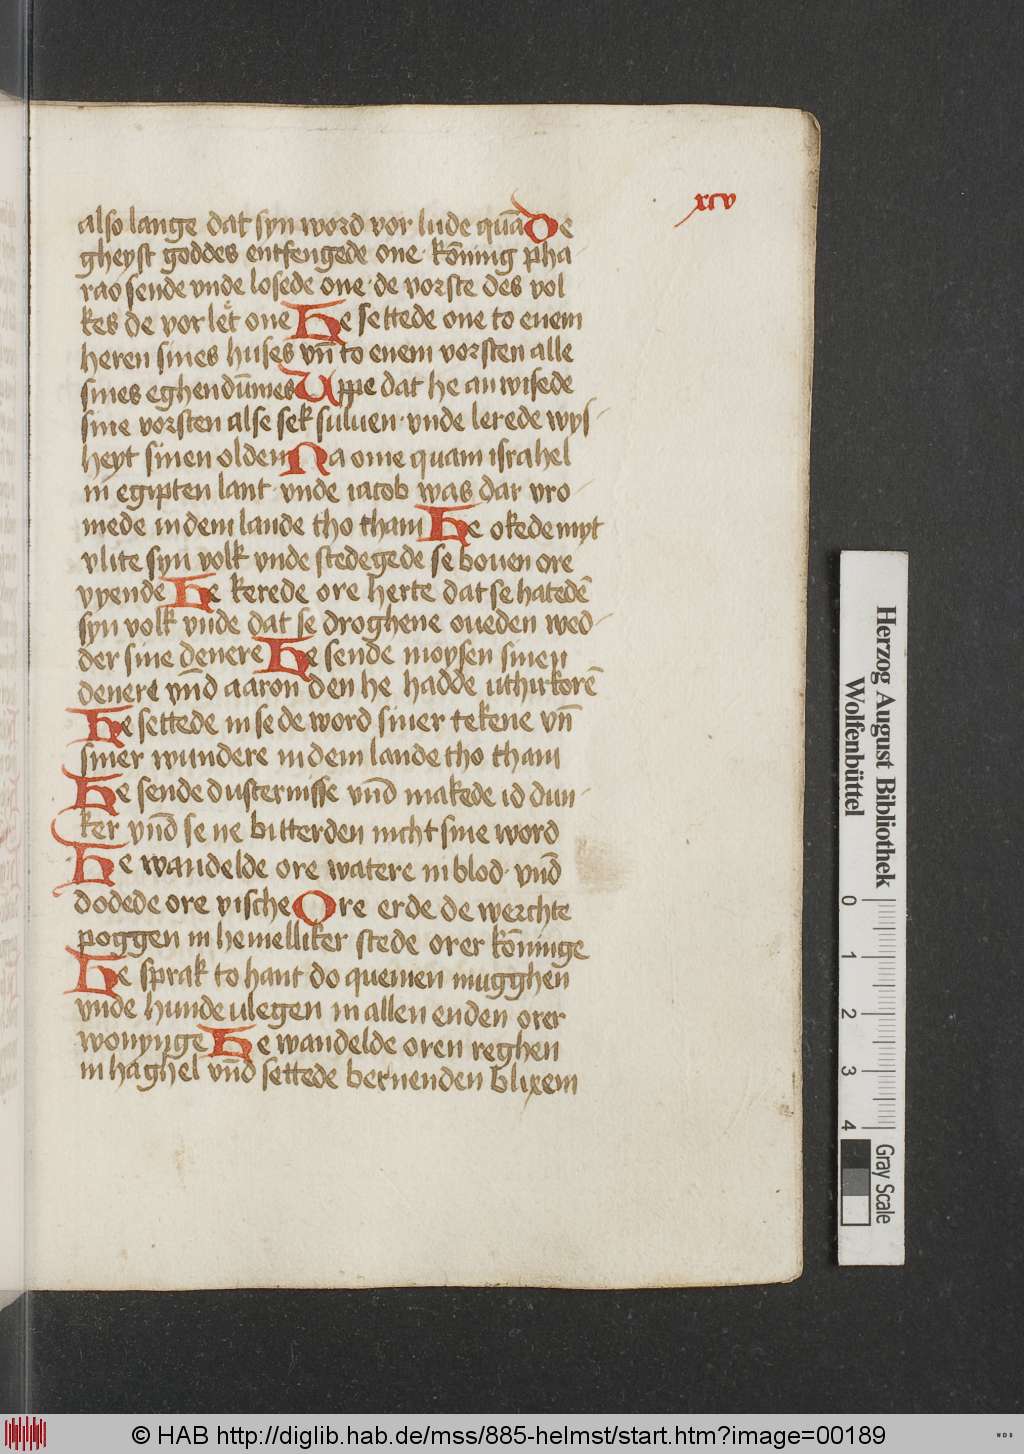 xcv
also lange dat syn word vor lude quā De
gheyst goddes entfengede one · kōning pha
rao sende vnde losede one · de vorste des vol
kes de vor let one He settede one to enem
heren sines huses vn̄ to enem vorsten alle
sines eghendūmes Uppe dat he an wisede
sine vorsten alse sek suluen · vnde lerede wys-
heyt sinen oldern Na ome quam israhel
in egipten lant · vnde iacob was dar vro-
mede in dem lande tho cham He okede myt
vlite syn volk vnde stedegede se bouen ore
vyende He kerede ore herte dat se hatedē
syn volk vnde dat se droghene oueden wed-
der sine denere He sende moysen sinen
denere vn̄d aaron den he hadde uthirkorē
He settede in se de word siner tekene vn̄
siner wundere in dem lande tho cham
He sende dusternisse vn̄d makede id dun-
ker vn̄d se ne bitterden nicht sine word
He wandelde ore watere in blod · vn̄d
dodede ore vische Ore erde de werchte
poggen in hemelliker stede orer kōninge
He sprak to hant do quemen mugghen
vnde hunde vlegen in allen enden orer
wonynge He wandelde oren reghen
in haghel vn̄d settede bernenden blixem
Herzog August Bibliothek
Wolfenbüttel
0 1 2 3 4
Gray Scale
© HAB http://diglib.hab.de/mss/885-helmst/start.htm?image=00189